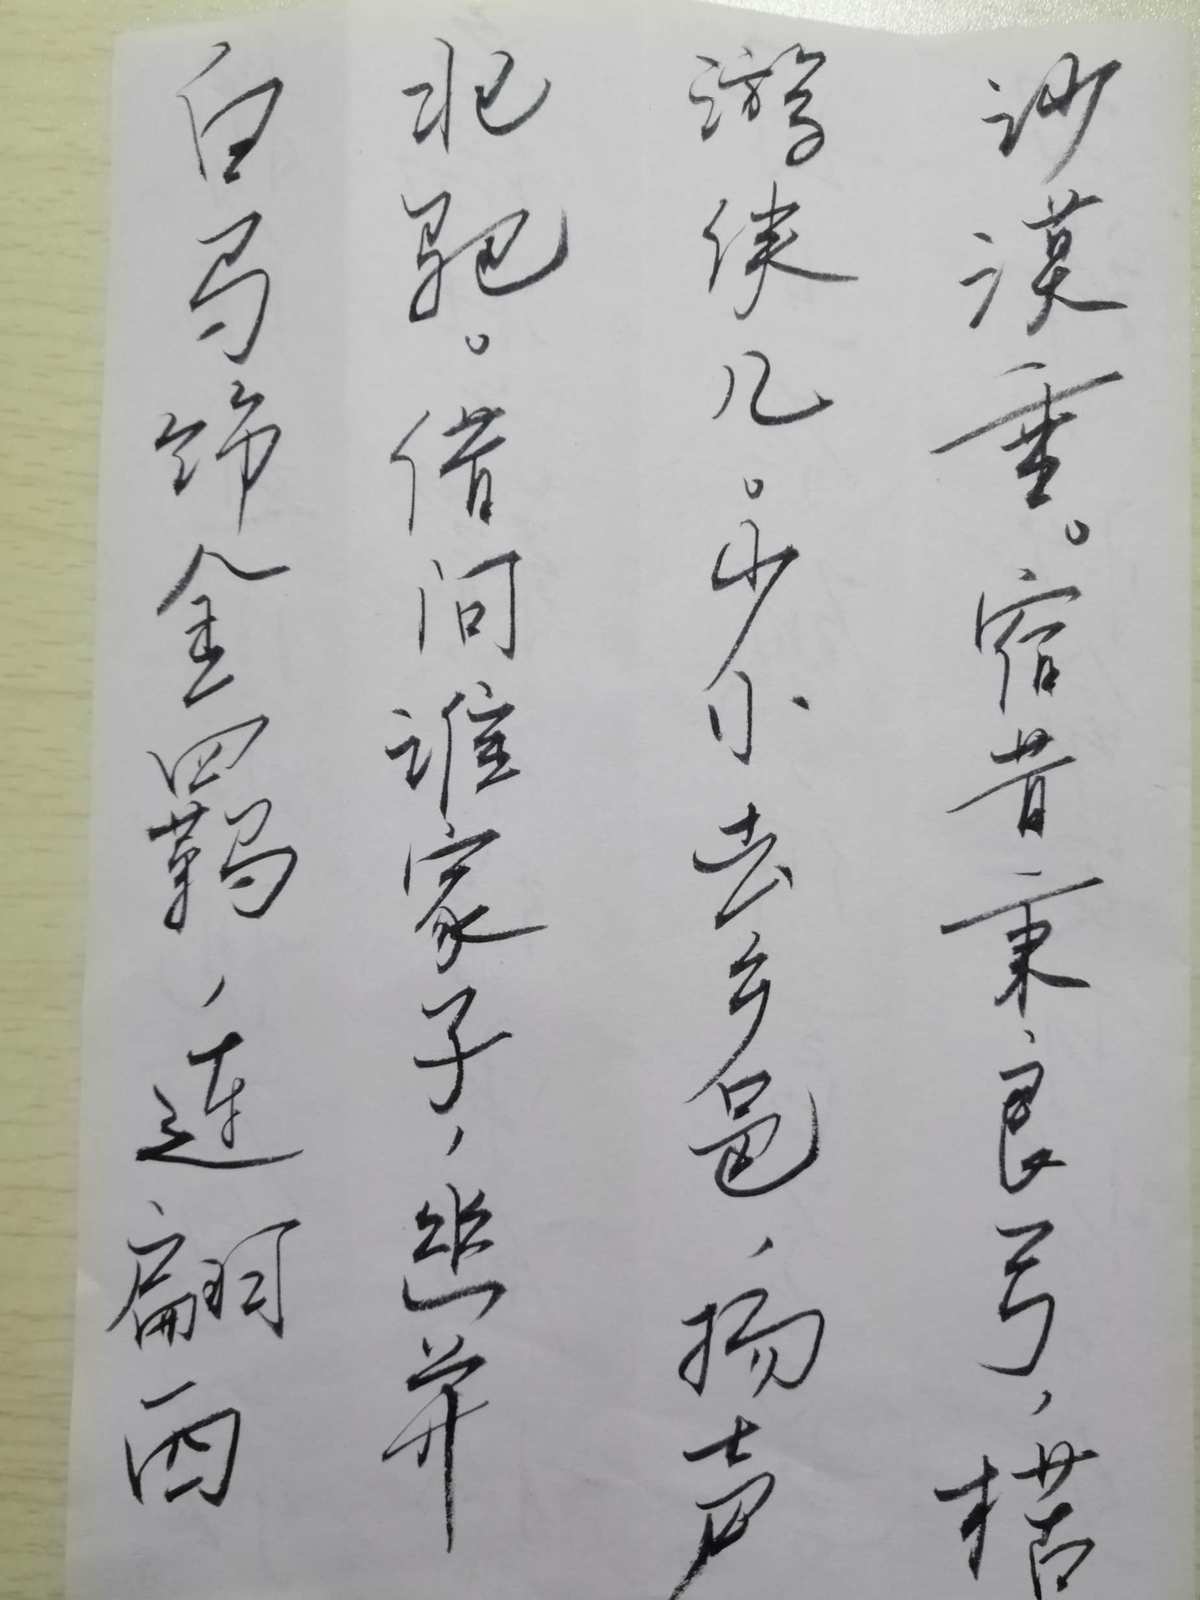 白马饰金羁，连翩西
北驰。借问谁家子，幽并
游侠儿。少小去乡邑，扬声
沙漠垂。宿昔秉良弓，楛